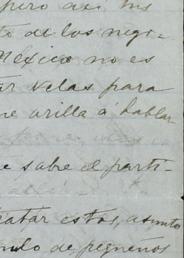 pero así mis
to de los nego-
México no es
tar velas para
me orilla á hablar
e sabe el parti-
ratar estos, asunto
ndo de pequeños